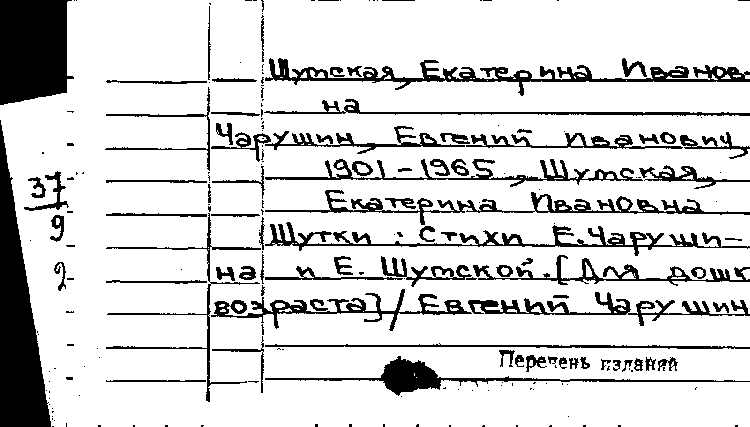 Шутская, Екатерина Иванов-
на
Чарушин, Евгений Иванович,
1901-1965, Шутская,
37 Екатерина Ивановна
9 Шутки : стихи Е. Чаруши-
2 на и Е. Шутской. [Для дошк
возраста] / Евгений Чарушин
Перечень изданий